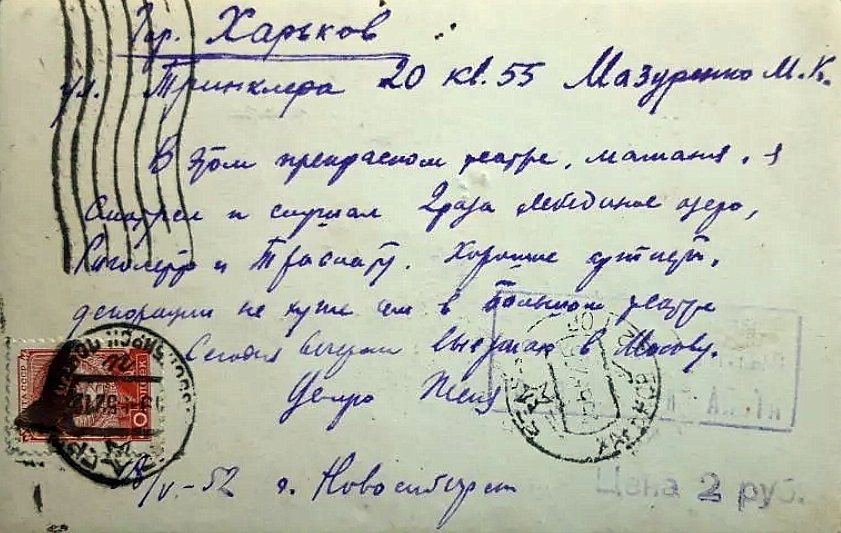 Гор. Харьков
ул. Тринклера 20 кв. 55 Мазуренко М. К.
В этом прекрасном театре, мамаша, я
смотрел и слушал 2 раза Лебединое озеро,
Риголетто и Травиату. Хорошие артисты,
декорации не хуже чем в Большом театре
Сегодня вечером выезжаю в Москву.
Целую Женя
18/V-52 г. Новосибирск
Цена 2 руб.
ПОЧТА СССР